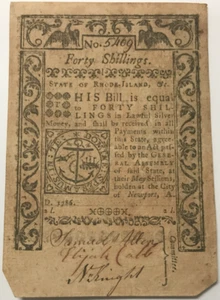 No. 5469
Forty Shillings.
STATE of RHODE-ISLAND, &c.
THIS Bill is equal
to FORTY SHIL-
LINGS in Lawful Silver
Money, and shall be received in all
Payments within
this State, agree-
able to an Act pas-
sed by the GENE-
RAL ASSEMBLY
of said State, at
their May Session,
holden at the City
of Newport, A.
D. 1786.
Samuel Allen
Elijah Cobb
N. Knight